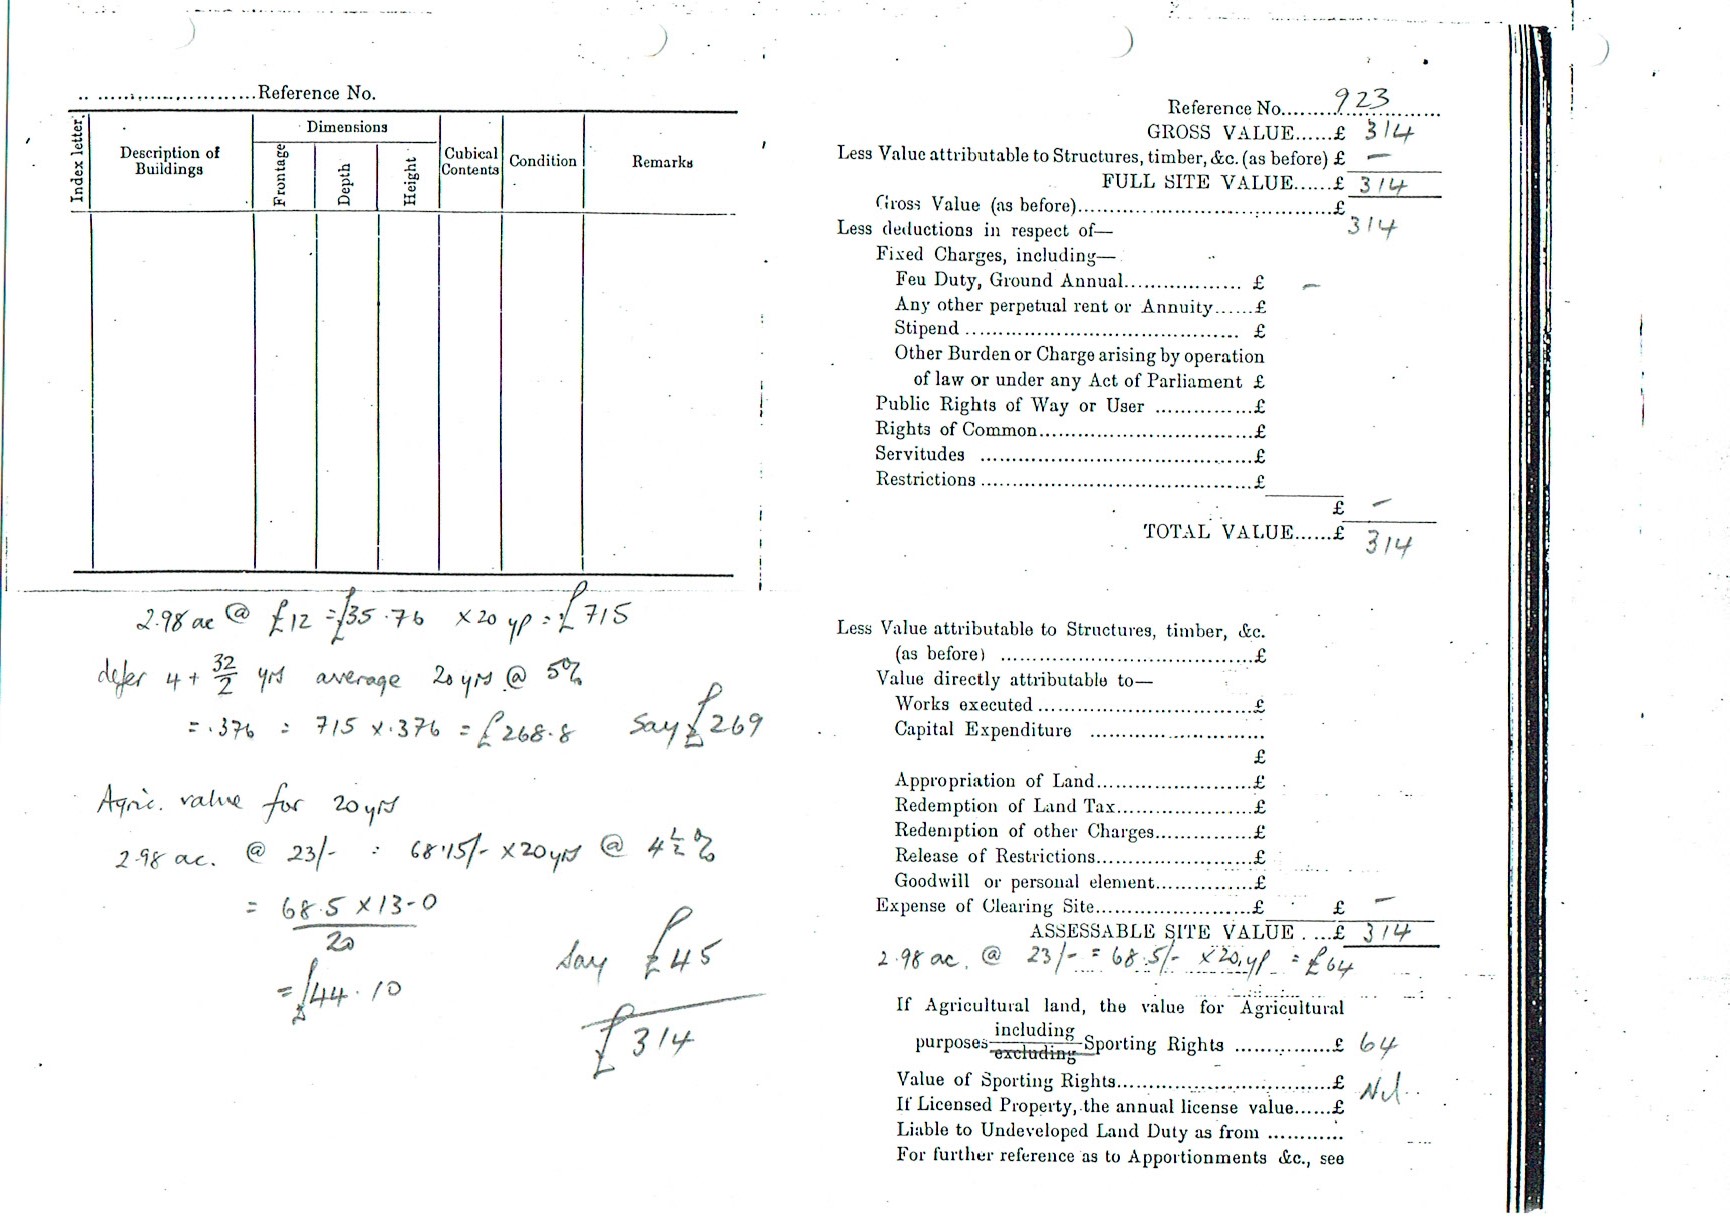 Reference No.
Index letter.
Description of Buildings
Dimensions
Frontage
Depth
Height
Cubical Contents
Condition
Remarks
2.98 ac @ £12 = £35.76 x 20 yp = £715
defer 4 + 32/2 yrs average 20 yrs @ 5%
= .376 : 715 x .376 = £268.8 Say £269
Agric. value for 20 yrs
2.98 ac. @ 23/- : 68.15/- x 20 yrs @ 4½%
= 68.5 x 13-0
20
= £44.10
Say £45
£314
Reference No. 923
GROSS VALUE......£ 314
Less Value attributable to Structures, timber, &c. (as before) £ —
FULL SITE VALUE......£ 314
Gross Value (as before)........£ 314
Less deductions in respect of—
Fixed Charges, including—
Feu Duty, Ground Annual........ £ —
Any other perpetual rent or Annuity......£
Stipend ........ £
Other Burden or Charge arising by operation
of law or under any Act of Parliament £
Public Rights of Way or User ........£
Rights of Common........£
Servitudes ........£
Restrictions ........£
£ —
TOTAL VALUE......£ 314
Less Value attributable to Structures, timber, &c.
(as before) ........£
Value directly attributable to—
Works executed ........£
Capital Expenditure ........
£
Appropriation of Land........£
Redemption of Land Tax........£
Redemption of other Charges........£
Release of Restrictions........£
Goodwill or personal element........£
Expense of Clearing Site........£ £ —
ASSESSABLE SITE VALUE ....£ 314
2.98 ac. @ 23/- = 68.5/- x 20 yp = £64
If Agricultural land, the value for Agricultural
purposes including excluding Sporting Rights ........£ 64
Value of Sporting Rights........£ Nil
If Licensed Property, the annual license value......£
Liable to Undeveloped Land Duty as from ............
For further reference as to Apportionments &c., see